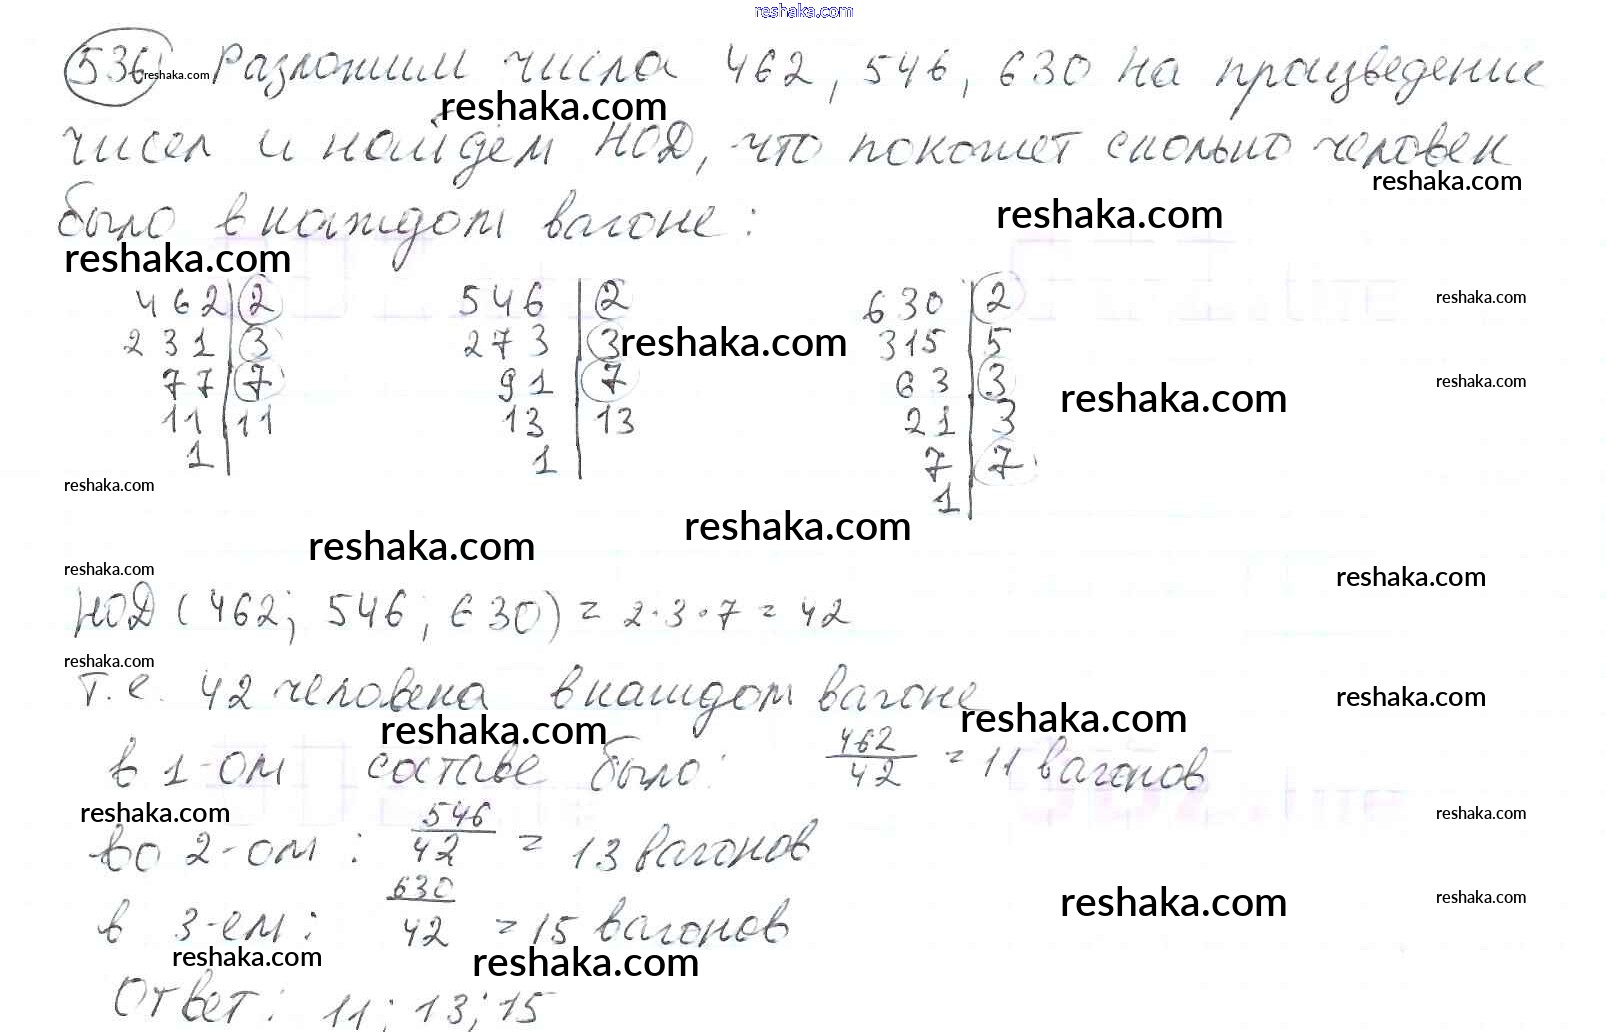 reshaka.com
536 Разложим числа 462, 546, 630 на произведение
reshaka.com
reshaka.com
чисел и найдём НОД, что покажет сколько человек
reshaka.com
было в каждом вагоне:
reshaka.com
reshaka.com
462 | 2 546 | 2 630 | 2
reshaka.com
231 | 3 273 | 3 315 | 5
reshaka.com
77 | 7 91 | 7 63 | 3
reshaka.com
reshaka.com
11 | 11 13 | 13 21 | 3
1 | 1 | 7 | 7
reshaka.com
1 |
reshaka.com
reshaka.com
reshaka.com
reshaka.com
НОД (462; 546; 630) = 2·3·7 = 42
reshaka.com
т.е. 42 человека в каждом вагоне
reshaka.com
reshaka.com
reshaka.com
в 1-ом составе было: 462/42 = 11 вагонов
reshaka.com
reshaka.com
во 2-ом: 546/42 = 13 вагонов
reshaka.com
reshaka.com
в 3-ем: 630/42 = 15 вагонов
reshaka.com
reshaka.com
Ответ: 11; 13; 15